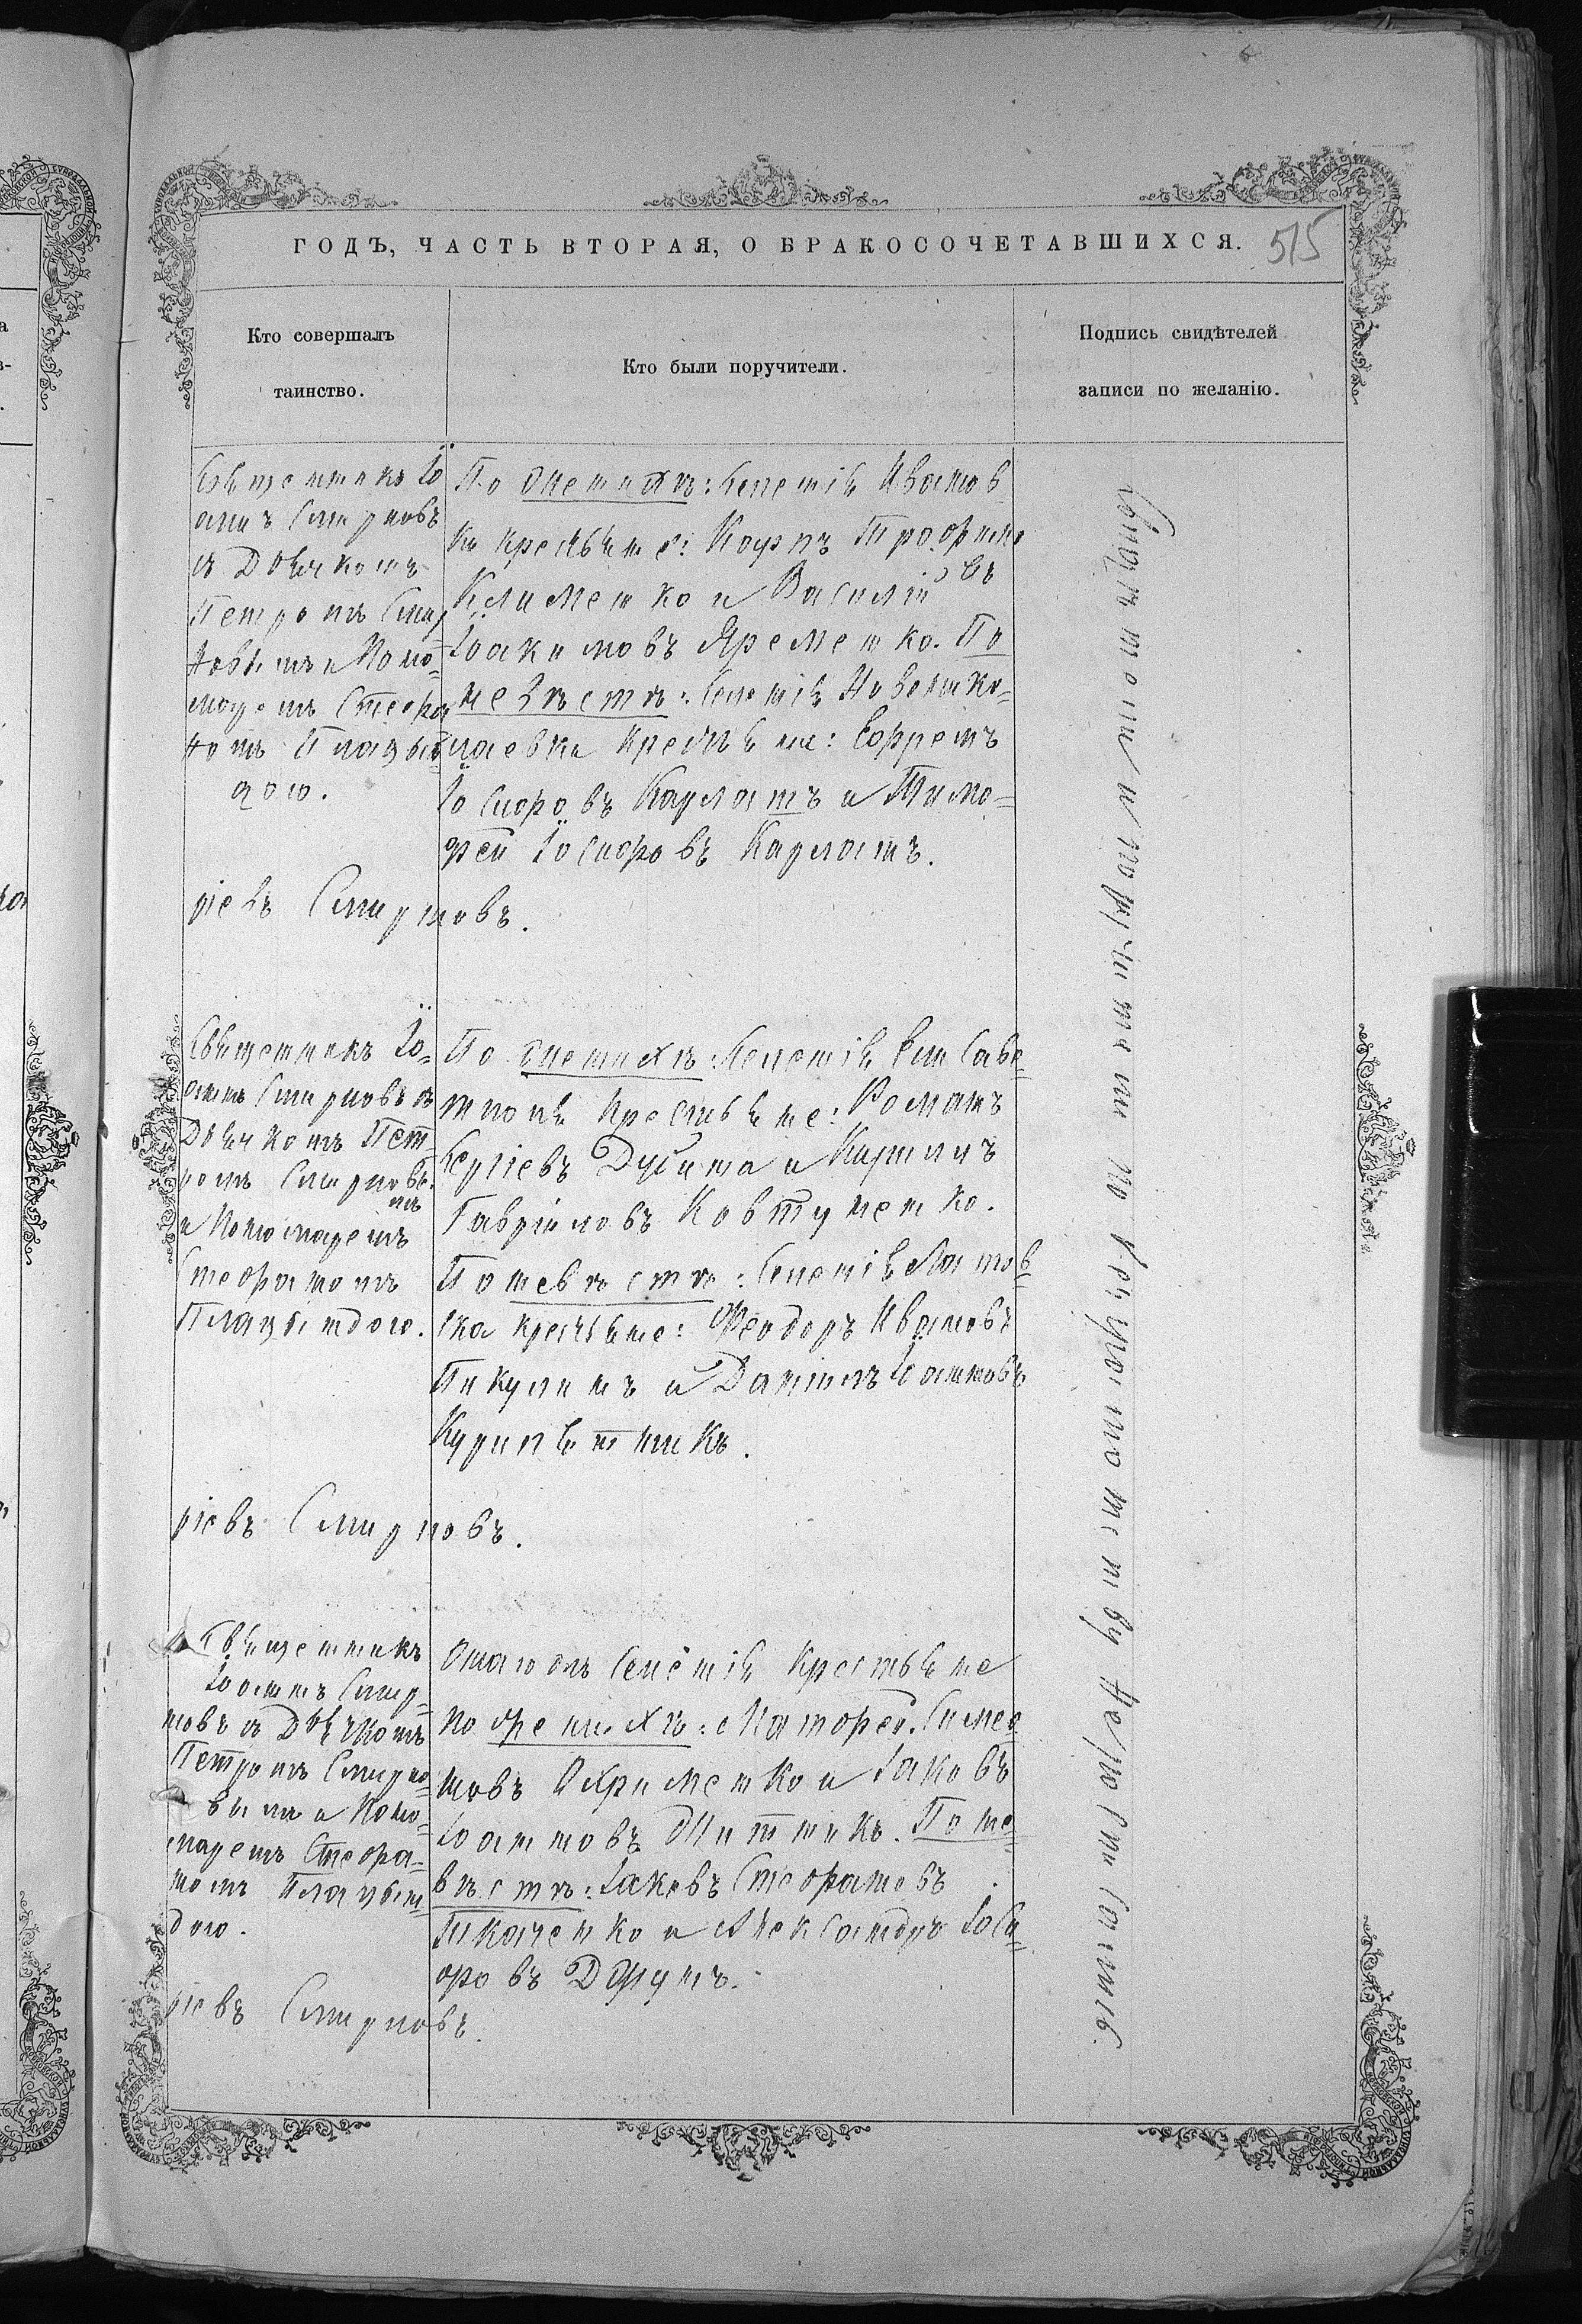 ГОДЪ, ЧАСТЬ ВТОРАЯ, О БРАКОСОЧЕТАВШИХСЯ.
515
Кто совершалъ
таинство.
Кто были поручители.
Подпись свидѣтелей
записи по желанію.
Священникъ Іо
аннъ Смирновъ
съ Дьячкомъ
Петромъ Смир
новымъ и Поно-
маремъ Стефа
номъ Плаузын-
дою.
По женихѣ: Селенія Иванов
ки крестьяне: Карпъ Трофимо
въ
Клименко и Василій
Іоакимовъ Яременко. По
невѣстѣ: Селенія Новонико-
лаевки крестьяне: Ефремъ
Іосифовъ Карманъ и Тимо-
фей Іосифовъ Карманъ.
ріевъ Смирновъ.
Священникъ Іо-
аннъ Смирновъ съ
Дьячкомъ Пет
ромъ Смирновы
мъ
и Пономаремъ
Стефаномъ
Плаузындою.
По женихѣ: Селенія Елисаве-
тполя крестьяне: Романъ
Сергіевъ Дубина и Кириллъ
Гавріиловъ Ковтуненко.
По невѣстѣ: Селенія
крестьяне: Феодоръ Ивановъ
Пикулинъ и Даніилъ Іоанновъ
ріевъ Смирновъ.
Священникъ
Іоаннъ Смир-
новъ съ Дьячкомъ
Петромъ Смирно-
вымъ и Поно-
маремъ Стефа-
номъ Плаузын-
дою.
Онаго жъ Селенія крестьяне
по женихѣ: Матфей Симео
новъ Охрименко и Іаковъ
Іоанновъ Житникъ. По не-
вѣстѣ: Іаковъ Стефановъ
Ткаченко и Александръ Іоси-
фовъ
ріевъ Смирновъ.